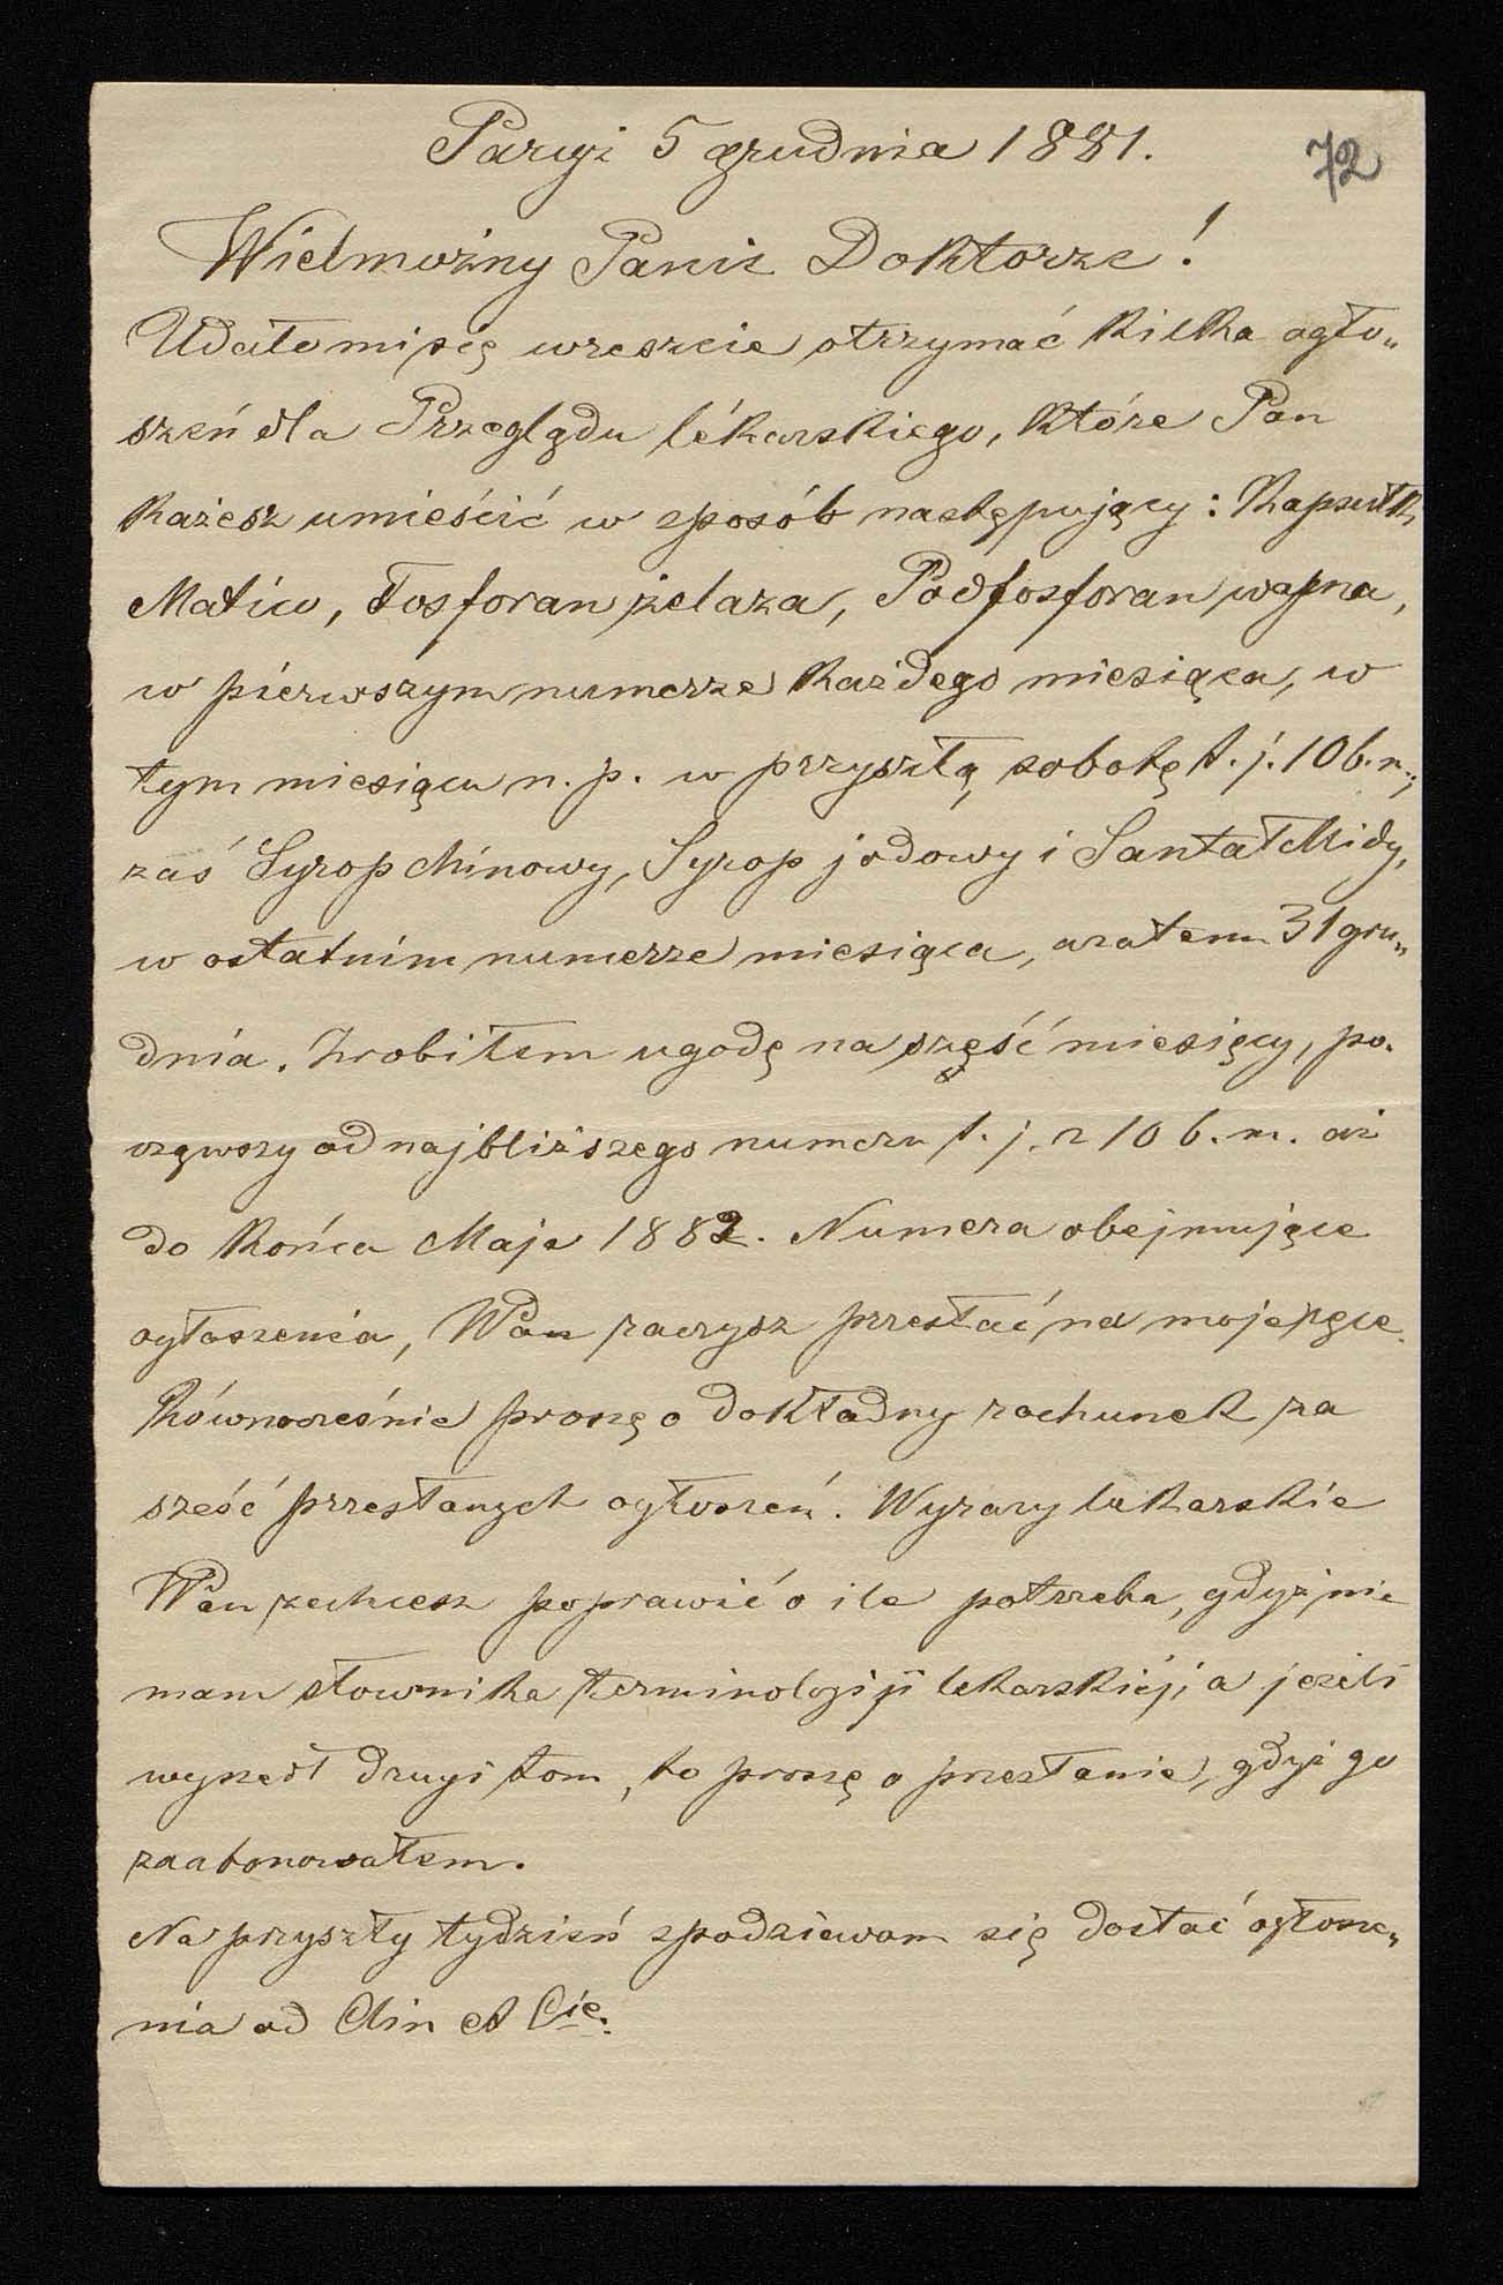 Paryż 5 grudnia 1881.
72
Wielmożny Panie Doktorze!
Udało mi się wreszcie otrzymać kilka ogło„
szeń dla Przeglądu lékarskiego, które Pan
każesz umieścić w sposób następujący: Kapsułki
Matico, Fosforan żelaza, Podfosforan wapna,
w pierwszym numerze każdego miesiąca, w
tym miesiącu n. p. w przyszłą sobotę t. j. 10 b. m.;
zaś Syrop chinowy, Syrop jodowy i Santal Midy,
w ostatnim numerze miesiąca, a zatem 31 gru„
dnia. Zrobiłem ugodę na sześć miesięcy, po.
cząwszy od najbliższego numeru t. j. z 10 b. m. aż
do końca Maja 1882. Numera obejmujące
ogłoszenia, WPan raczysz przesłać na moje ręce.
Równocześnie proszę o dokładny rachunek za
sześć przesłanych ogłoszeń. Wyrazy lekarskie
WPan zechcesz poprawić o ile potrzeba, gdyż nie
mam słownika terminologiji lekarskiéj; a jeżeli
wyszedł drugi tom, to proszę o przesłanie, gdyż go
zaabonowałem.
Na przyszły tydzień spodziewam się dostać ogłosze„
nia od Clin et Cie.